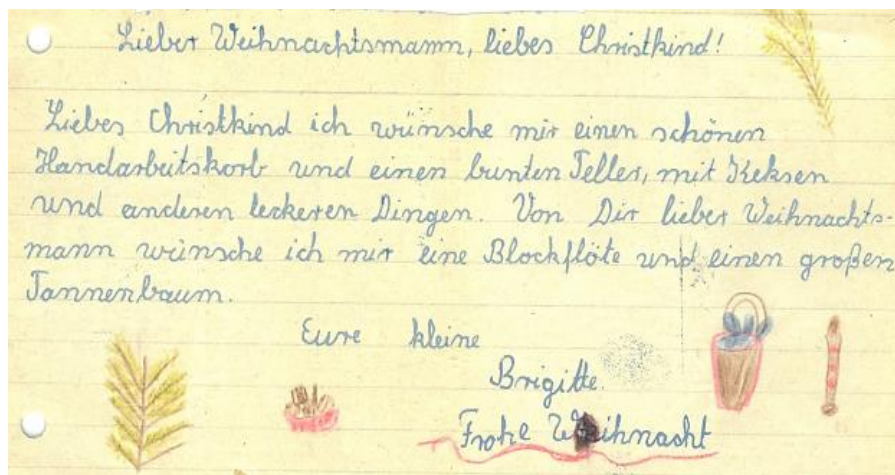 Lieber Weihnachtsmann, liebes Christkind!
Liebes Christkind ich wünsche mir einen schönen
Handarbeitskorb und einen bunten Teller, mit Keksen
und anderen leckeren Dingen. Von Dir lieber Weihnachts-
mann wünsche ich mir eine Blockflöte und einen großen
Tannenbaum.
Eure kleine
Brigitte.
Frohe Weihnacht